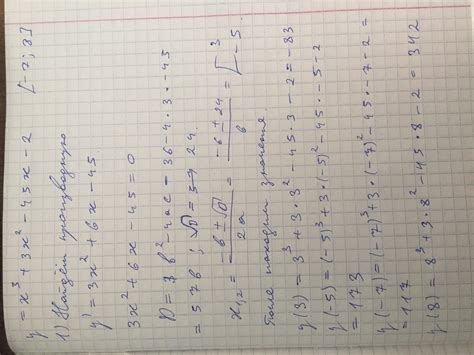 y = x³ + 3x² - 45x - 2 [-7; 8]
1) Найдём производную
y' = 3x² + 6x - 45
3x² + 6x - 45 = 0
D = b² - 4ac = 36 - 4 · 3 · -45
= 576 ; √D = 24
x₁,₂ = (-b ± √D) / 2a = (-6 ± 24) / 6 = [ 3 -5.
находим значения
y(3) = 3³ + 3 · 3² - 45 · 3 - 2 = -83
y(-5) = (-5)³ + 3 · (-5)² - 45 · -5 - 2
= 173
y(-7) = (-7)³ + 3 · (-7)² - 45 · -7 - 2 =
= 117
y(8) = 8³ + 3 · 8² - 45 · 8 - 2 = 342